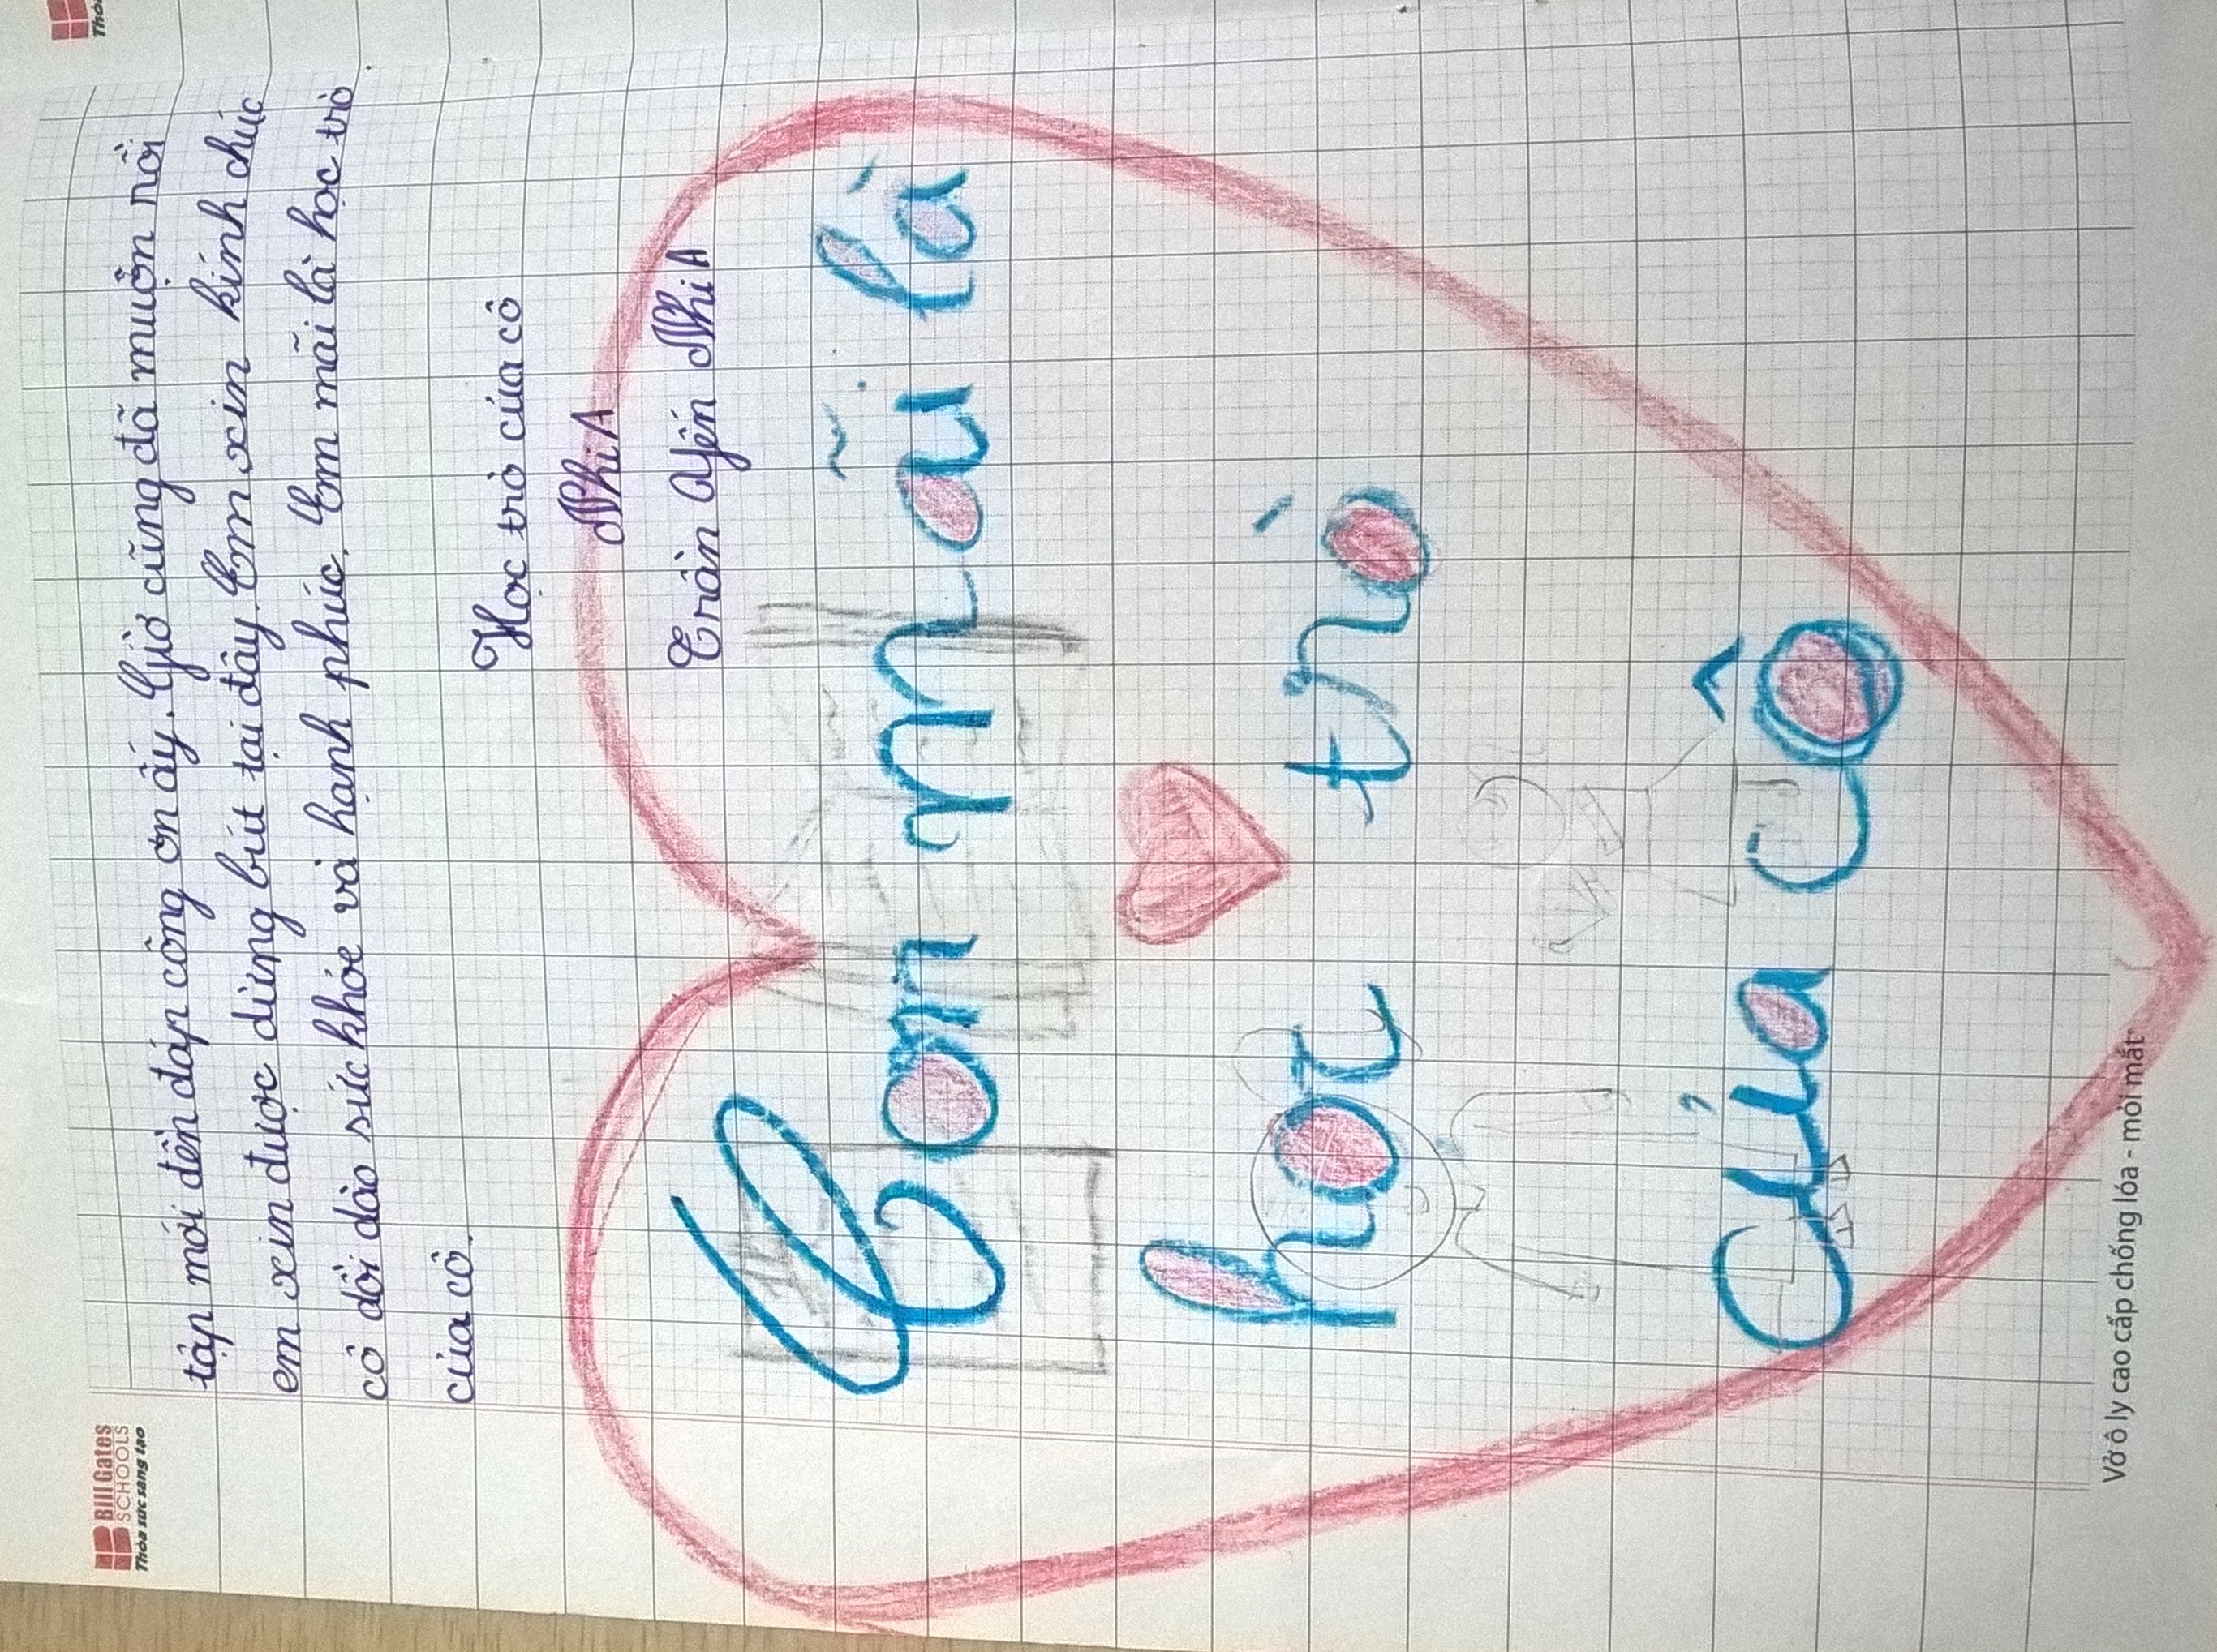 Bill Gates
SCHOOLS
Thỏa sức sáng tạo
tập mới đền đáp công ơn ấy. Giờ cũng đã muộn rồi
em xin được dừng bút tại đây. Em xin kính chúc
cô dồi dào sức khỏe và hạnh phúc. Em mãi là học trò
của cô.
Học trò của cô
Nhi A
Trần Yến Nhi A
Con mãi là
học trò
của cô
Vở ô ly cao cấp chống lóa - mỏi mắt